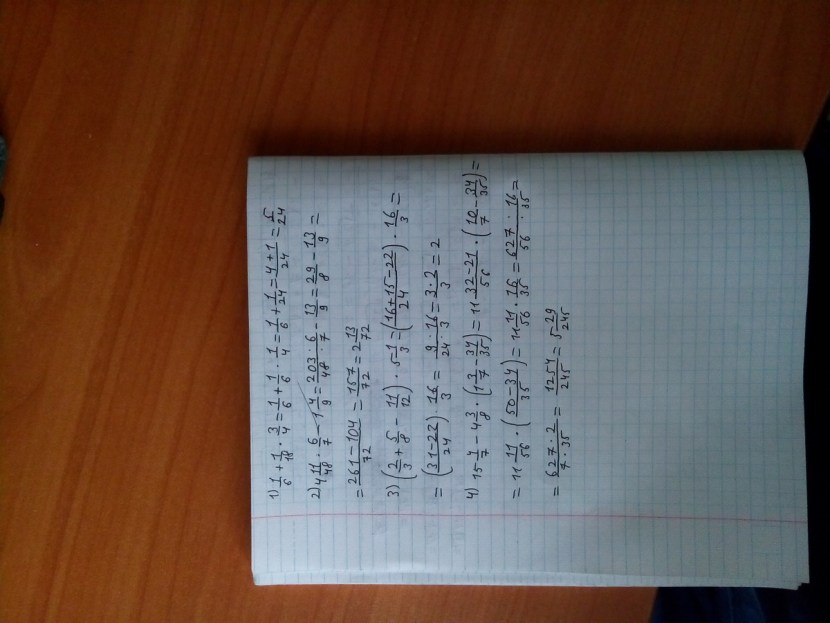 1) 1/6 + 1/18 · 3/4 = 1/6 + 1/6 · 1/4 = 1/6 + 1/24 = (4+1)/24 = 5/24
2) 4 11/48 · 6/7 − 1 4/9 = (203 · 6)/(48 · 7) − 13/9 = 29/8 − 13/9 =
= (261−104)/72 = 157/72 = 2 13/72
3) (2/3 + 5/8 − 11/12) · 5 1/3 = ((16+15−22)/24) · 16/3 =
= ((31−22)/24) · 16/3 = (9 · 16)/(24 · 3) = (3 · 2)/3 = 2
4) 15 4/7 − 4 3/8 · (1 3/7 − 34/35) = 11 (32−21)/56 · (10/7 − 34/35) =
= 11 11/56 · ((50−34)/35) = 11 11/56 · 16/35 = (627 · 16)/(56 · 35) =
= (627 · 2)/(7 · 35) = 1254/245 = 5 29/245